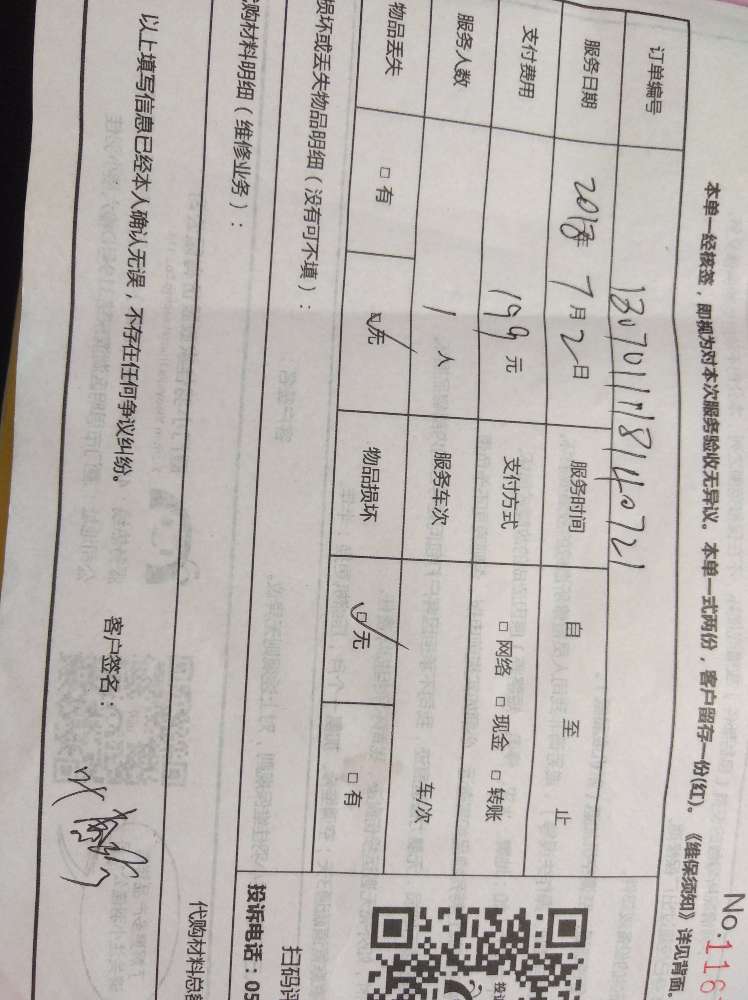 No.116
本单一经核签，即视为对本次服务验收无异议。本单一式两份，客户留存一份(红)。《维保须知》详见背面
订单编号
服务日期 2018年 7月2日 服务时间 自 至 止
支付费用 199元 支付方式 □网络 □现金 □转账
服务人数 1人 服务车次 车/次
物品丢失 □有 ☑无 物品损坏 ☑无 □有
损坏或丢失物品明细（没有可不填）：
代购材料明细（维修业务）：
以上填写信息已经本人确认无误，不存在任何争议纠纷。 客户签名：
扫码评
投诉电话：05
代购材料总额